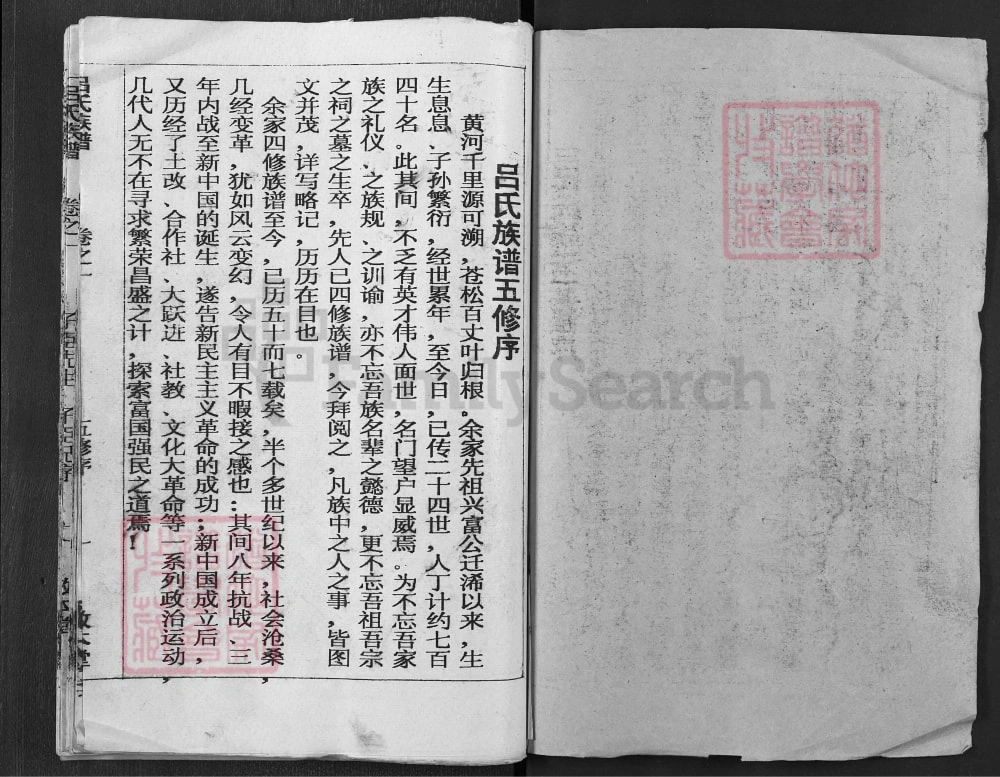 吕氏族谱五修序
黄河千里源可溯，苍松百丈叶归根。余家先祖兴富公迁浠以来，生
生息息、子孙繁衍，经世累年，至今日，已传二十四世，人丁计约七百
四十名。此其间，不乏有英才伟人面世，名门望户显威焉。为不忘吾家
族之礼仪、之族规、之训谕，亦不忘吾族名辈之懿德，更不忘吾祖吾宗
之祠之墓之生卒，先人已四修族谱，今拜阅之，凡族中之人之事，皆图
文并茂，详写略记，历历在目也。
余家四修族谱至今，已历五十而七载矣，半个多世纪以来，社会沧桑，
几经变革，犹如风云变幻，令人有目不暇接之感也：其间八年抗战、三
年内战至新中国的诞生，遂告新民主主义革命的成功；新中国成立后，
又历经了土改、合作社、大跃进、社教、文化大革命等一系列政治运动，
几代人无不在寻求繁荣昌盛之计，探索富国强民之道焉！
吕氏族谱
卷之一
五修序
一
FamilySearch